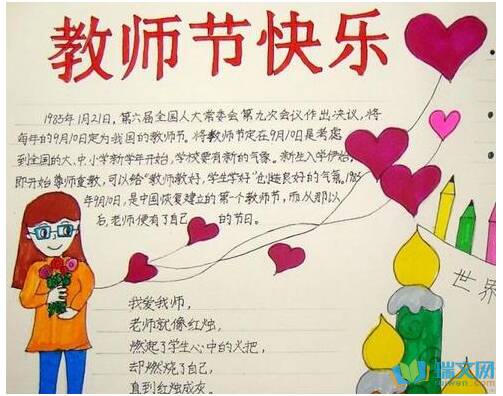 教师节快乐
1985年1月21日，第六届全国人大常委会第九次会议作出决议，将
每年的9月10日定为我国的教师节。将教师节定在9月10日是考虑
到全国的大、中小学新学年开始，学校要有新的气象。新生入学伊始，
即开始尊师重教，可以给“教师教好，学生学好”创造良好的气氛。1985
年9月10日，是中国恢复建立的第一个教师节，而从那以
后，老师便有了自己的节日。
我爱我师，
老师就像红烛，
燃起了学生心中的火把，
却燃烧了自己，
直到红烛成灰。
世界
瑞文网
ruiwen.com